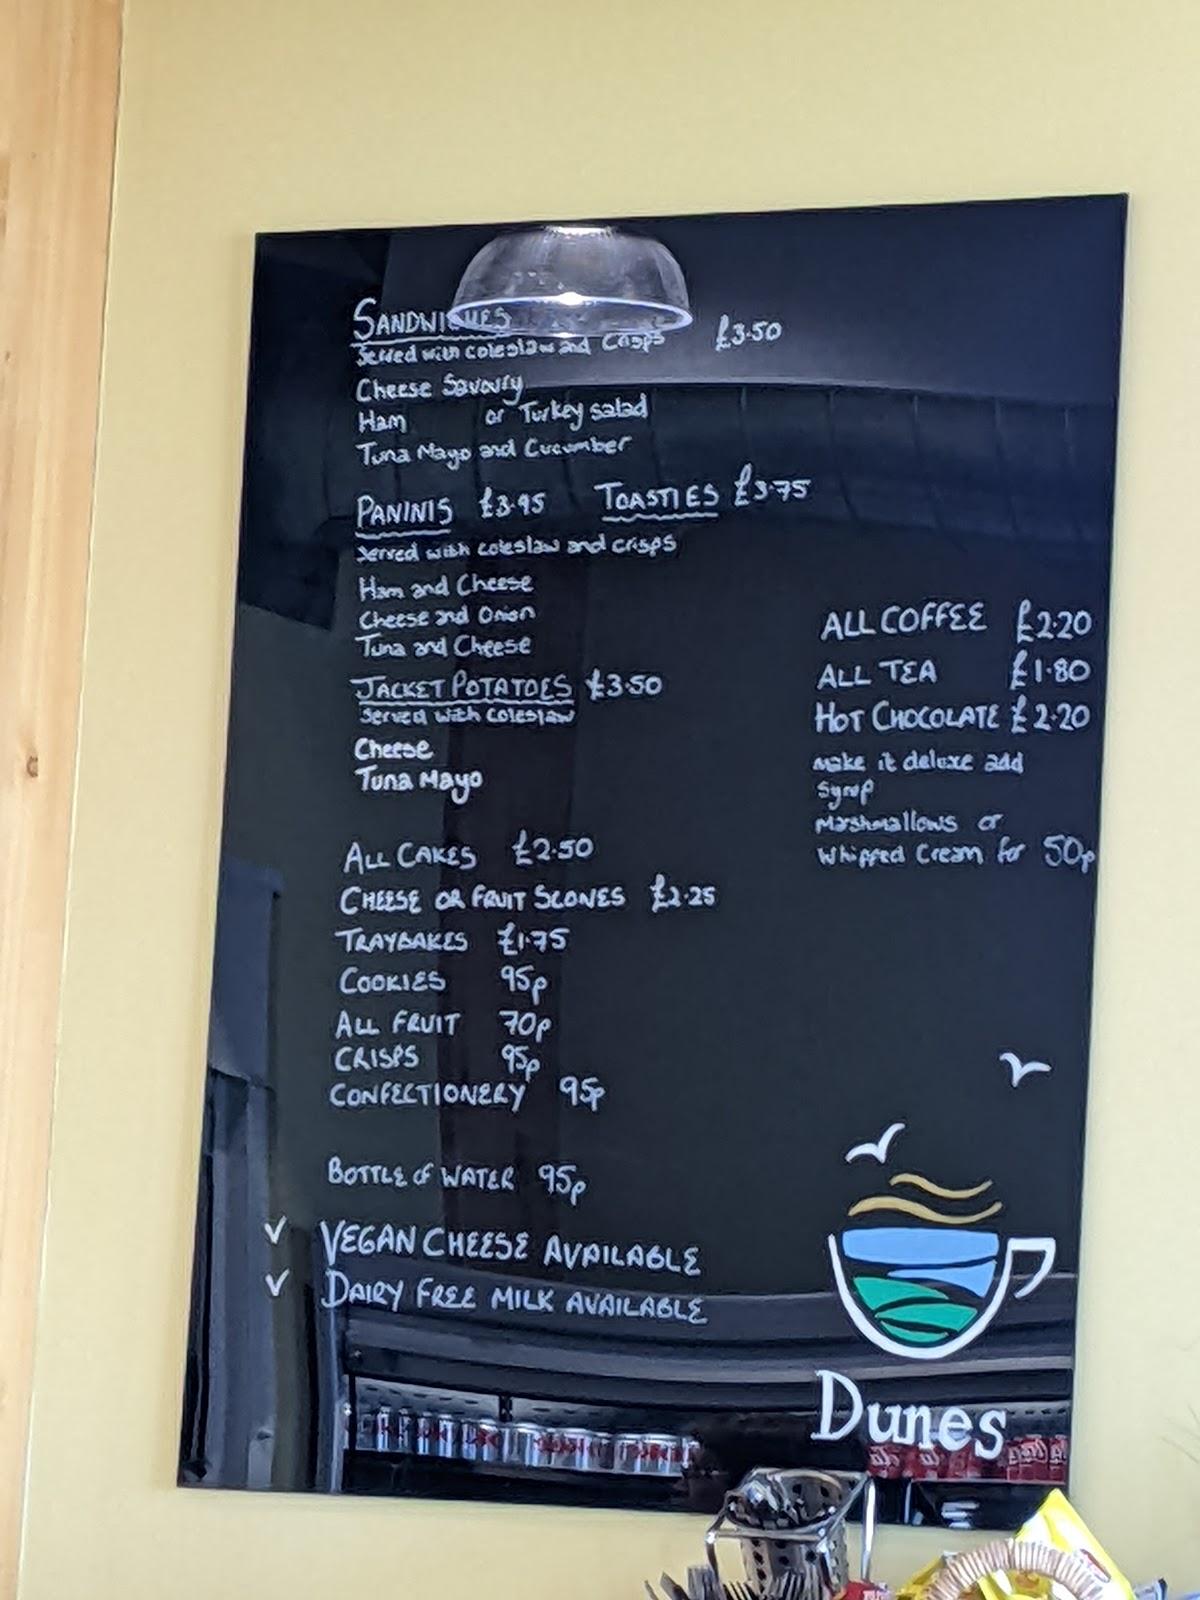 SANDWICHES
Served with coleslaw and Crisps £3.50
Cheese Savoury
Ham or Turkey salad
Tuna Mayo and Cucumber
PANINIS £3.95 TOASTIES £3.75
Served with coleslaw and crisps
Ham and Cheese
Cheese and Onion
Tuna and Cheese
JACKET POTATOES £3.50
Served with Coleslaw
Cheese
Tuna Mayo
ALL CAKES £2.50
CHEESE OR FRUIT SCONES £2.25
TRAYBAKES £1.75
COOKIES 95p
ALL FRUIT 70p
CRISPS 95p
CONFECTIONERY 95p
BOTTLE OF WATER 95p
✓ VEGAN CHEESE AVAILABLE
✓ DAIRY FREE MILK AVAILABLE
ALL COFFEE £2.20
ALL TEA £1.80
HOT CHOCOLATE £2.20
Make it deluxe add
Syrup
Marshmallows or
Whipped Cream for 50p
Dunes